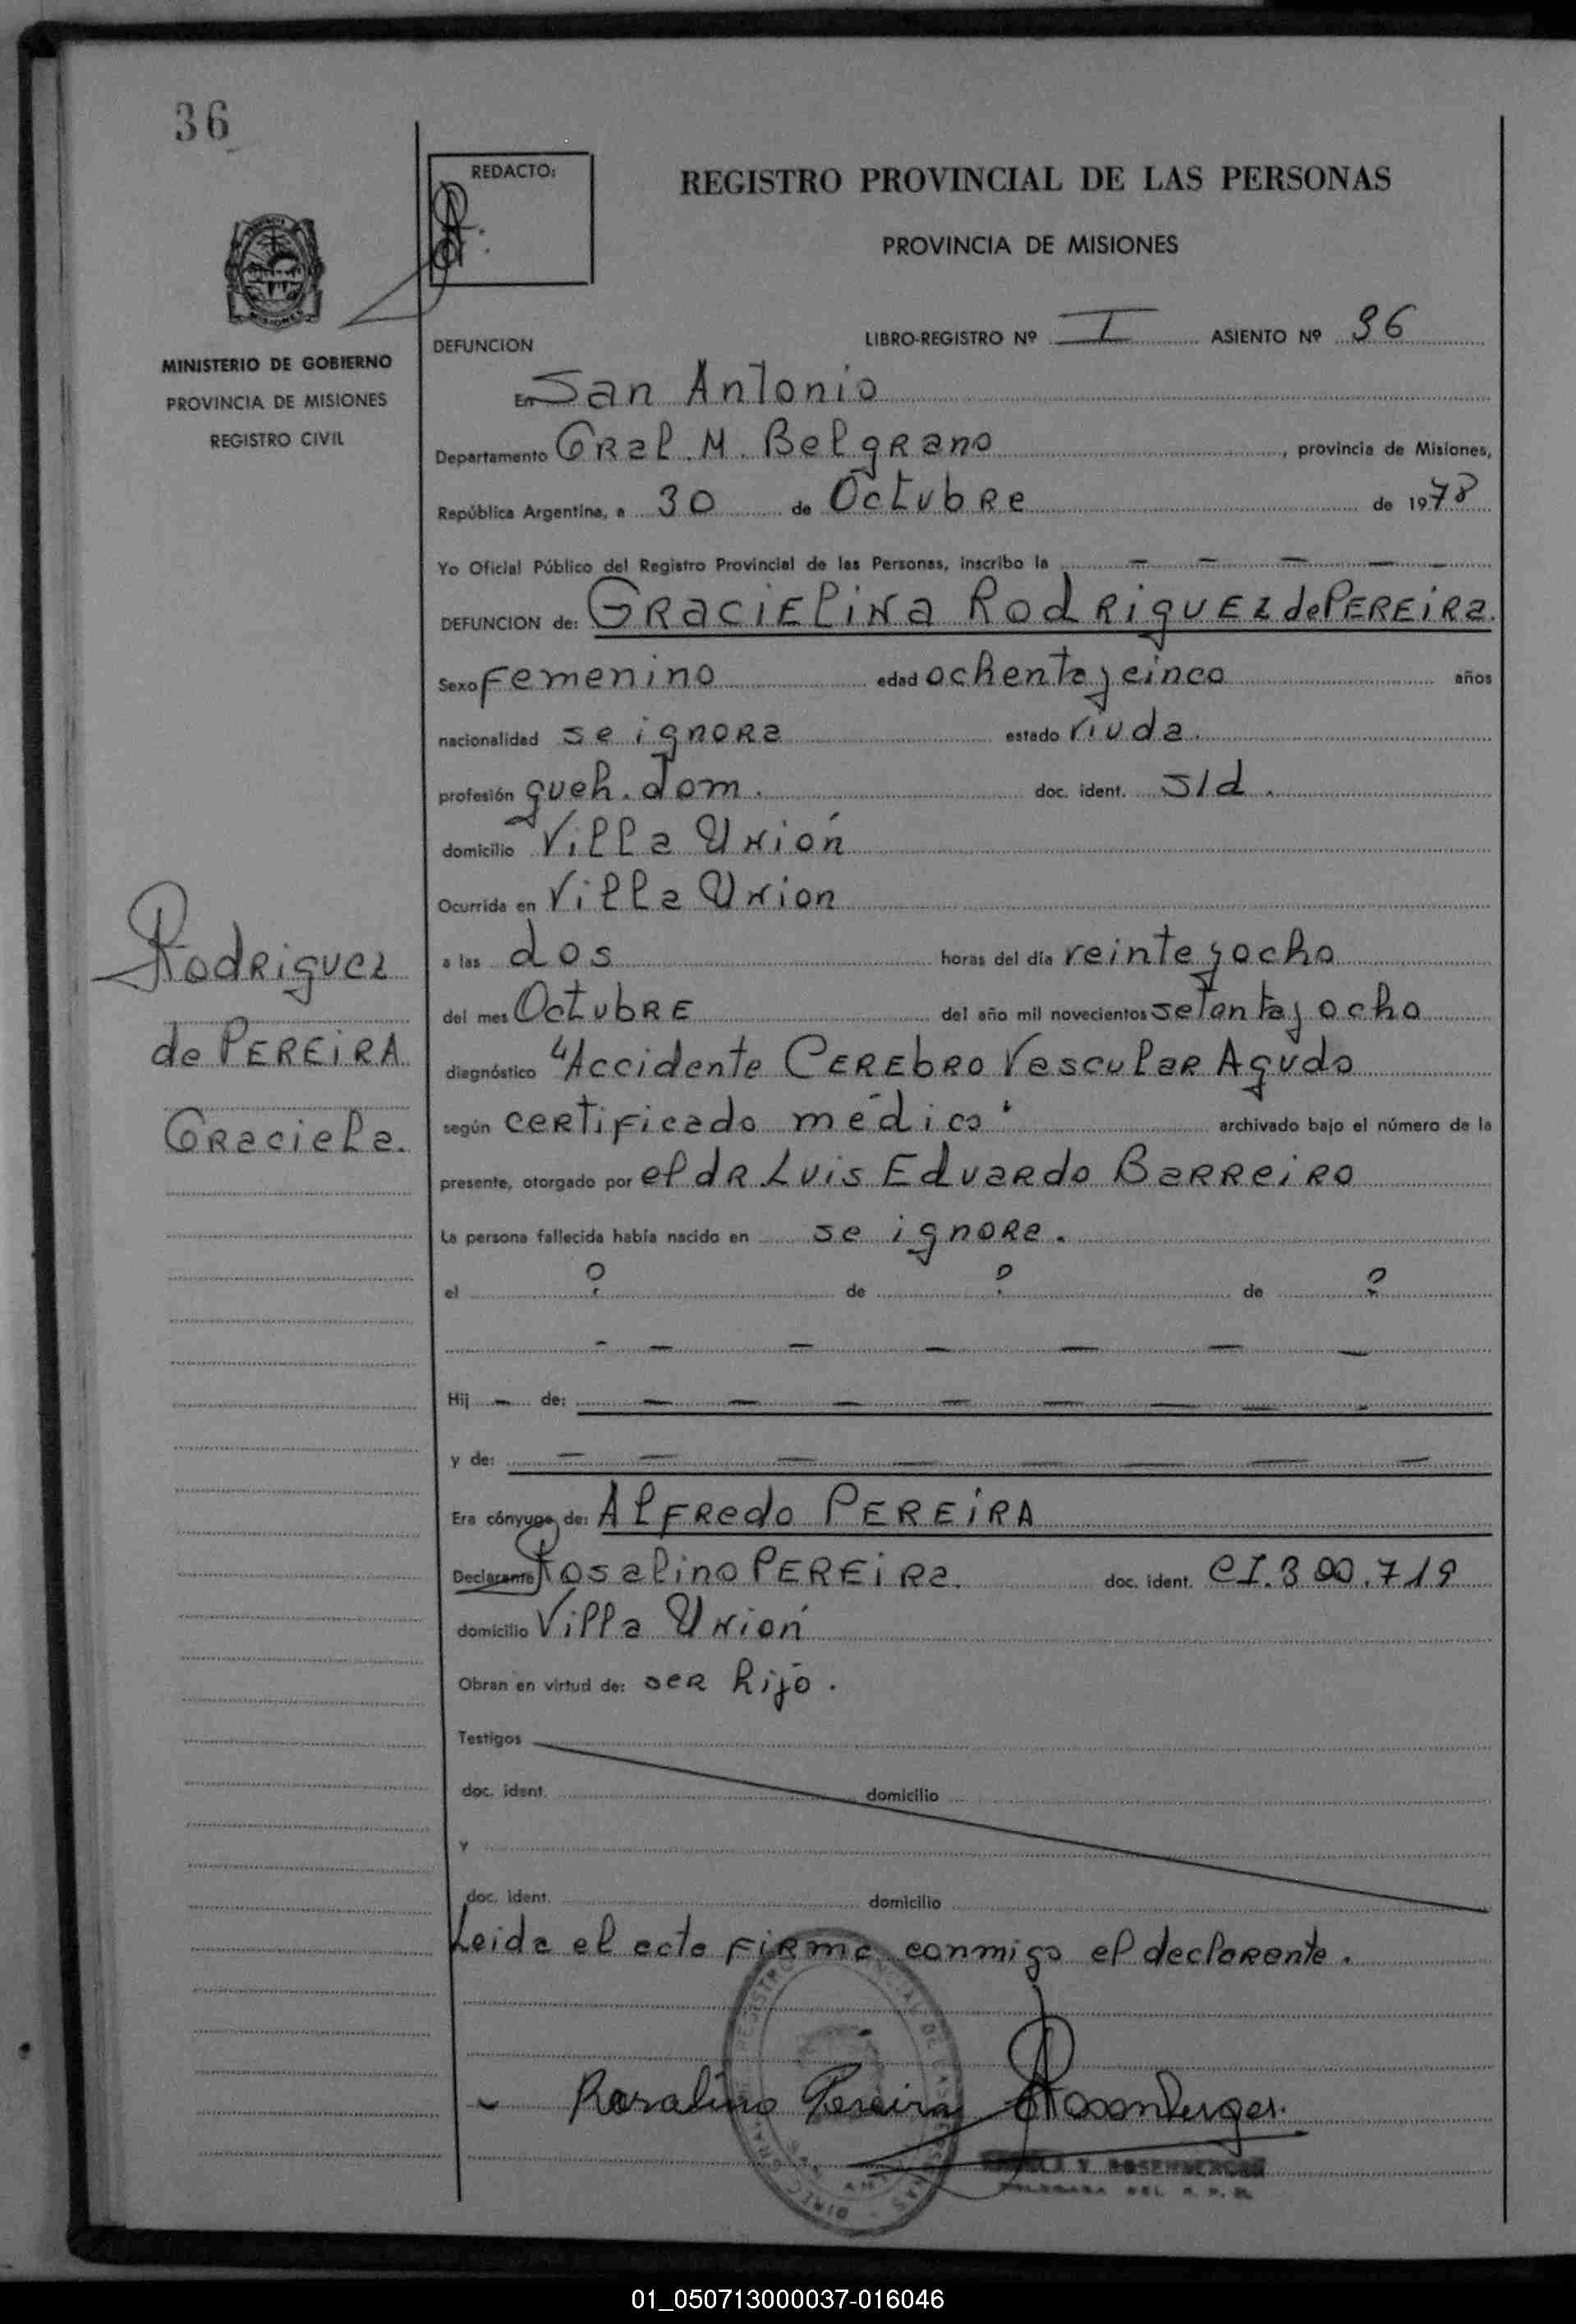 36
REDACTO:
REGISTRO PROVINCIAL DE LAS PERSONAS
PROVINCIA DE MISIONES
MINISTERIO DE GOBIERNO
PROVINCIA DE MISIONES
REGISTRO CIVIL
DEFUNCION LIBRO-REGISTRO Nº I ASIENTO Nº 36
En San Antonio
Departamento Gral. M. Belgrano, provincia de Misiones,
República Argentina, a 30 de Octubre de 1978
Yo Oficial Público del Registro Provincial de las Personas, inscribo la - - - - -
DEFUNCION de: Gracielina Rodriguez de Pereira.
Sexo Femenino edad ochenta y cinco años
nacionalidad se ignora estado viuda.
profesión queh. dom. doc. ident. S/d.
domicilio Villa Unión
Ocurrida en Villa Union
a las dos horas del día veinte y ocho
del mes Octubre del año mil novecientos setenta y ocho
diagnóstico "Accidente Cerebro Vascular Agudo
según certificado médico" archivado bajo el número de la
presente, otorgado por el dr Luis Eduardo Barreiro
La persona fallecida había nacido en se ignora.
el ? de ? de ?
- - - - - - -
Hij - de: - - - - - - - -
y de: - - - - - - - -
Era cónyuge de: Alfredo Pereira
Declarante Rosalino Pereira. doc. ident. CI. 300.719
domicilio Villa Unión
Obran en virtud de: ser hijo.
Testigos
doc. ident. domicilio
y
doc. ident. domicilio
Leida el acta firma conmigo el declarante.
Rosalino Pereira Rosenberger.
Rodriguez
de Pereira
Graciela.
01_050713000037-016046